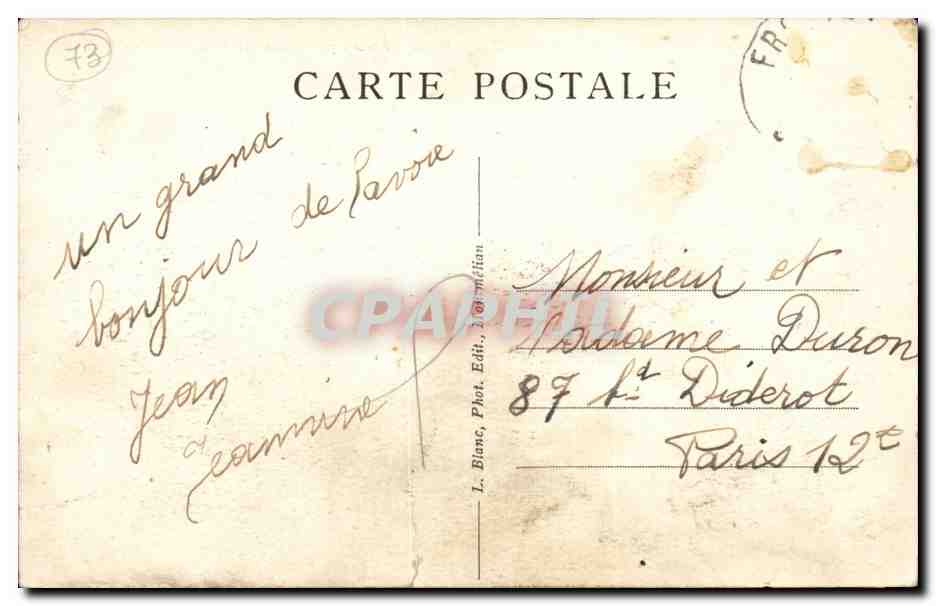 73
CARTE POSTALE
un grand
bonjour de Savoie
Jean
Jeannine
L. Blanc, Phot. Edit., Montmélian
CPAPHIL
Monsieur et
Madame Duron
87 bd Diderot
Paris 12e